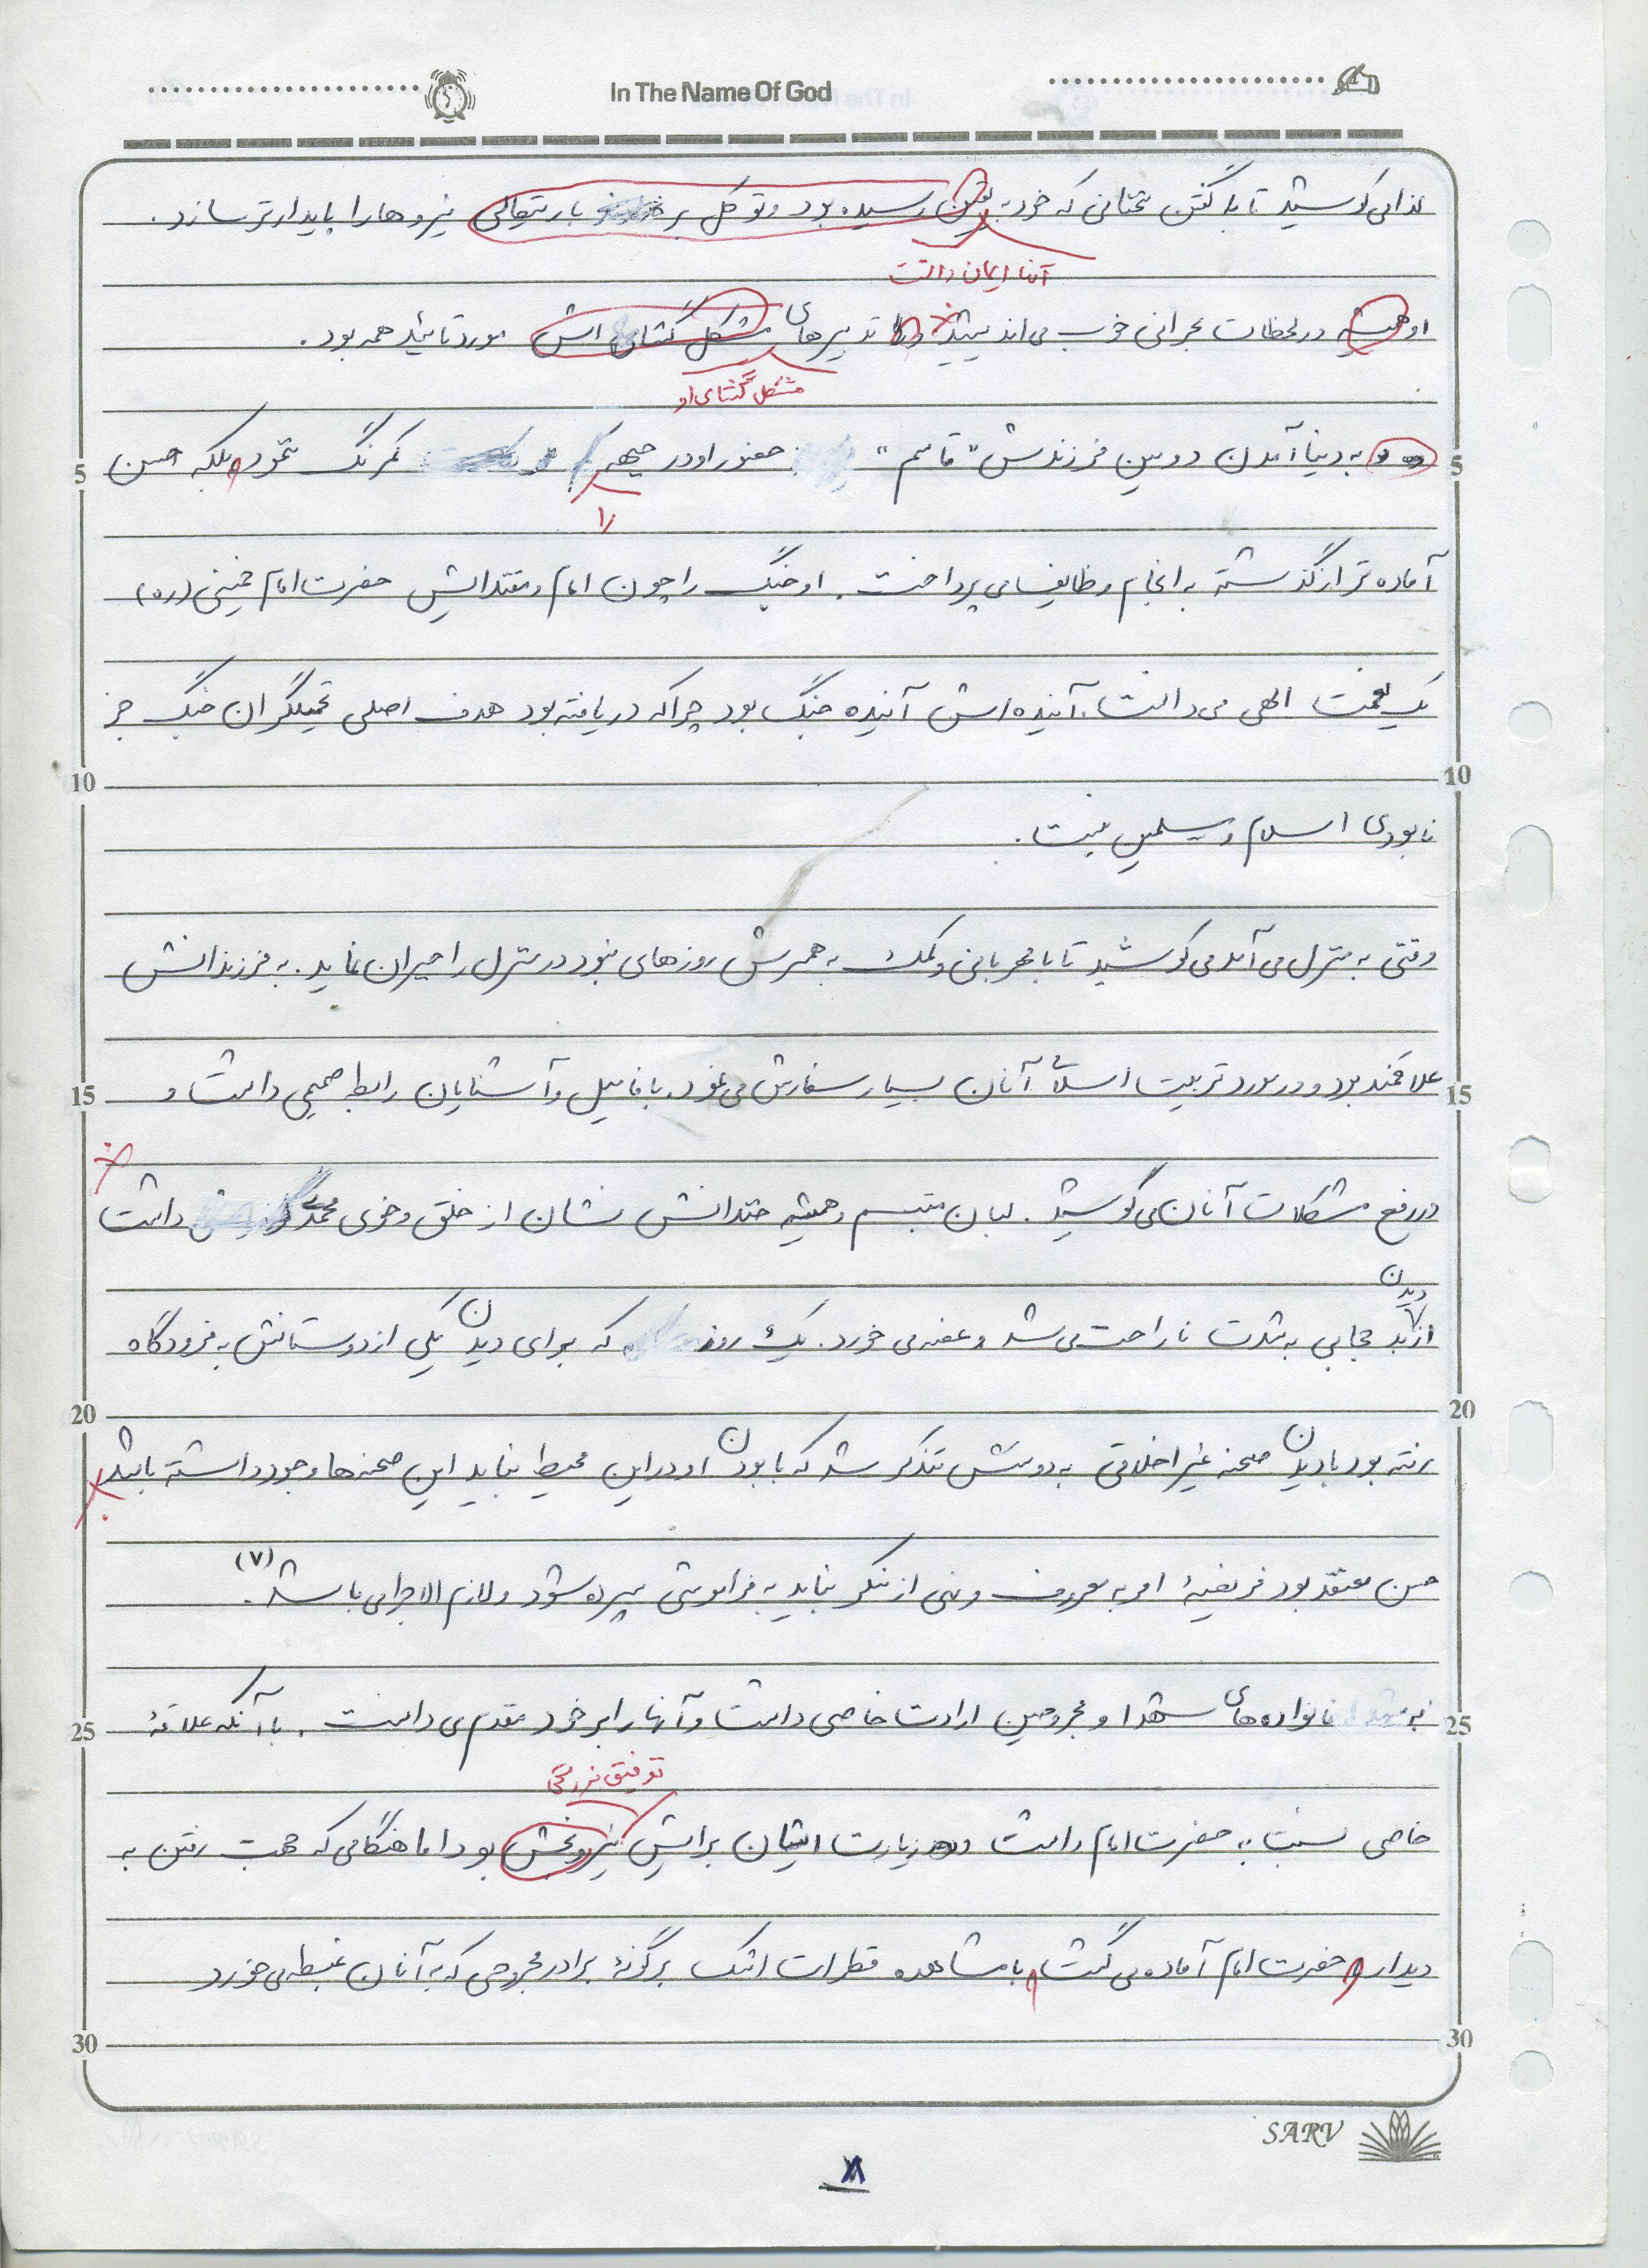 In The Name Of God
لذا می کوشید تا با گفتن سخنانی که خود به یقین رسیده بود و توکل بر باریتعالی نیروها را پایدارتر سازد.
آنها ایمان داشت
او همیشه در لحظات بحرانی خوب می اندیشید و تدبیرهای مشکل گشای اش مورد تائید همه بود.
مشکل گشای او
به دنیا آمدن دومین فرزندش "قاسم" حضور او در جبهه کمرنگ ننمود بلکه حسن
را
5
5
آماده تر از گذشته به انجام وظایف می پرداخت. او جنگ را چون امام و مقتدایش حضرت امام خمینی (ره)
یک نعمت الهی می دانست. آینده اش آینده جنگ بود چرا که دریافته بود هدف اصلی تحمیلگران جنگ جز
10
10
نابودی اسلام و مسلمین نیست.
وقتی به منزل می آمد می کوشید تا با مهربانی و کمک به همسرش روزهای نبود در منزل را جبران نماید. به فرزندانش
علاقمند بود و در مورد تربیت اسلامی آنان بسیار سفارش می نمود. با فامیل و آشنایان رابطه صمیمی داشت و
15
15
در رفع مشکلات آنان می کوشید. لبان متبسم و همیشه خندانش نشان از خلق و خوی محمدی داشت
دیدن
از بد حجابی به شدت ناراحت می شد و غصه می خورد. یک روز که برای دیدن یکی از دوستانش به فرودگاه
20
20
رفته بود با دیدن صحنه غیر اخلاقی به دوستش متذکر شد که با بودن او در این محیط نباید این صحنه ها وجود داشته باشد.
حسن معتقد بود فریضهٔ امر به معروف و نهی از منکر نباید به فراموشی سپرده شود و لازم الاجرا می باشد. (۷)
به خانواده های شهدا و مجروحین ارادت خاصی داشت و آنها را بر خود مقدم می دانست. با آنکه علاقهٔ
25
25
توفیق بزرگی
خاصی نسبت به حضرت امام داشت و زیارت ایشان برایش نیروبخش بود اما هنگامی که جهت رفتن به
دیدار حضرت امام آماده می گشت، با مشاهده قطرات اشک بر گونهٔ برادر مجروحی که به آنان غبطه می خورد
30
30
SARV
۸